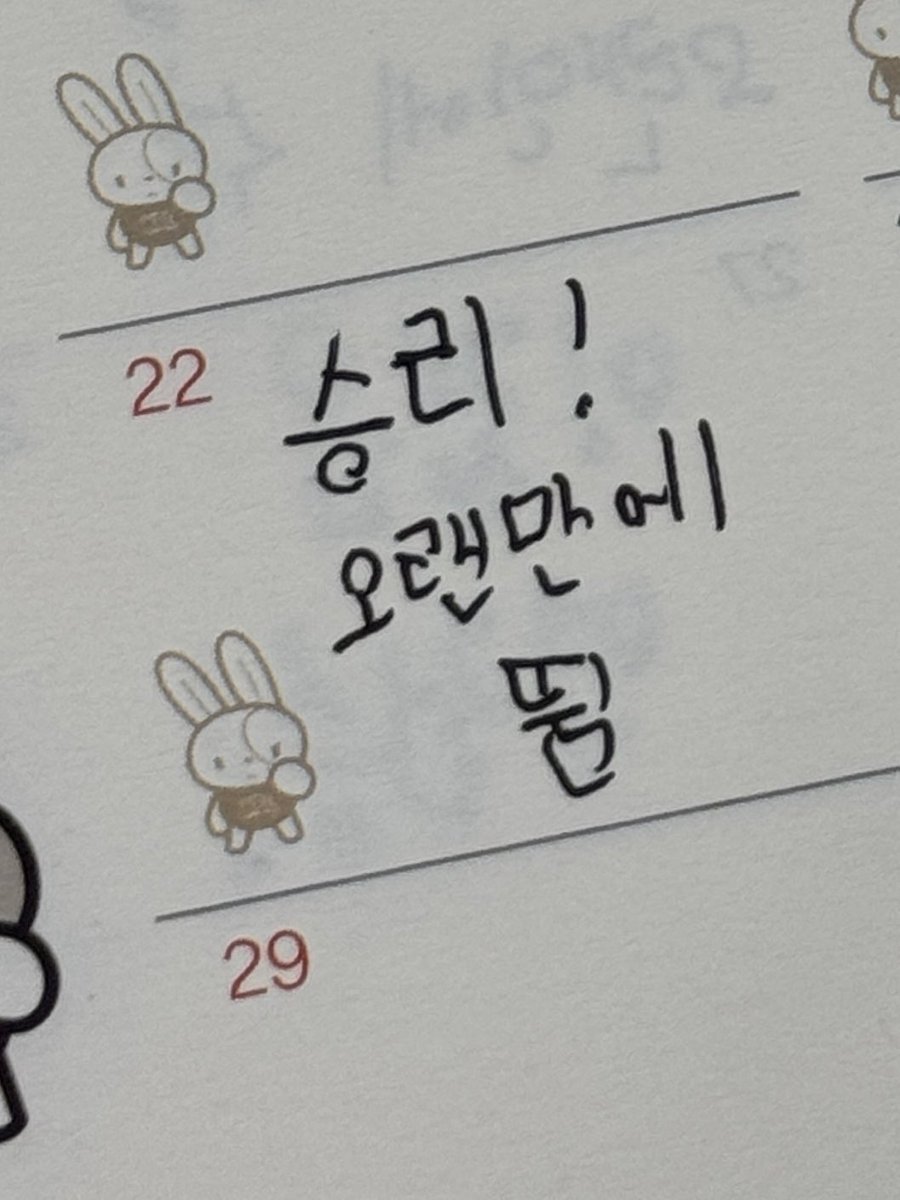 22 승리!
오랜만에
뜀
29